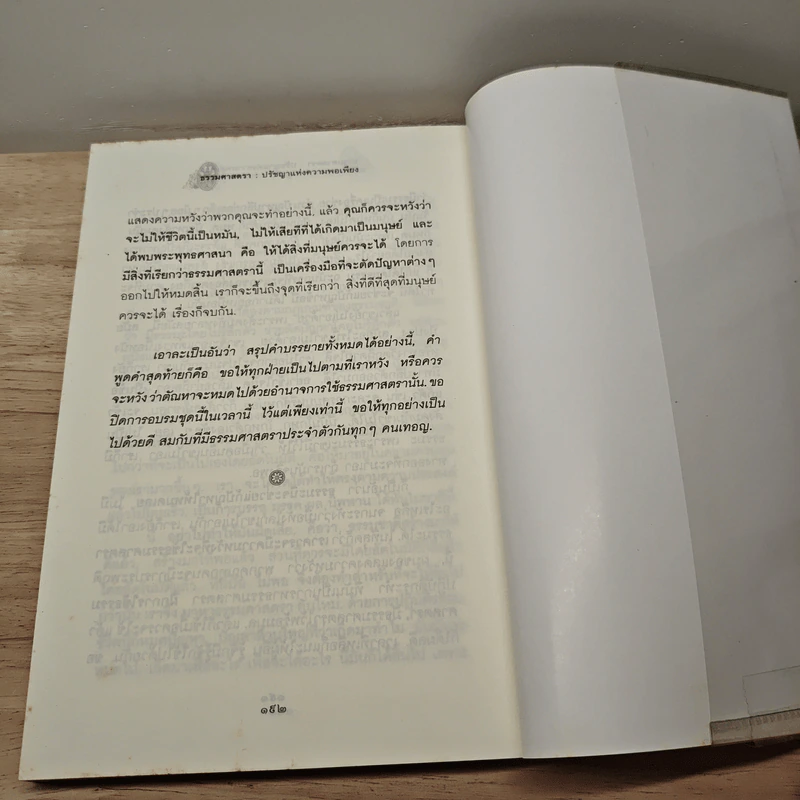 ธรรมศาสตรา : ปรัชญาแห่งความพอเพียง
แสดงความหวังว่าพวกคุณจะทำอย่างนี้. แล้ว คุณก็ควรจะหวังว่า
จะไม่ให้ชีวิตนี้เป็นหมัน, ไม่ให้เสียทีที่ได้เกิดมาเป็นมนุษย์ และ
ได้พบพระพุทธศาสนา คือ ให้ได้สิ่งที่มนุษย์ควรจะได้ โดยการ
มีสิ่งที่เรียกว่าธรรมศาสตรานี้ เป็นเครื่องมือที่จะตัดปัญหาต่าง ๆ
ออกไปให้หมดสิ้น เราก็จะขึ้นถึงจุดที่เรียกว่า สิ่งที่ดีที่สุดที่มนุษย์
ควรจะได้ เรื่องก็จบกัน.
เอาละเป็นอันว่า สรุปคำบรรยายทั้งหมดได้อย่างนี้, คำ
พูดคำสุดท้ายก็คือ ขอให้ทุกฝ่ายเป็นไปตามที่เราหวัง หรือควร
จะหวัง ว่าตัณหาจะหมดไปด้วยอำนาจการใช้ธรรมศาสตรานั้น. ขอ
ปิดการอบรมชุดนี้ในเวลานี้ ไว้แต่เพียงเท่านี้ ขอให้ทุกอย่างเป็น
ไปด้วยดี สมกับที่มีธรรมศาสตราประจำตัวกันทุก ๆ คนเทอญ.
๑๙๒